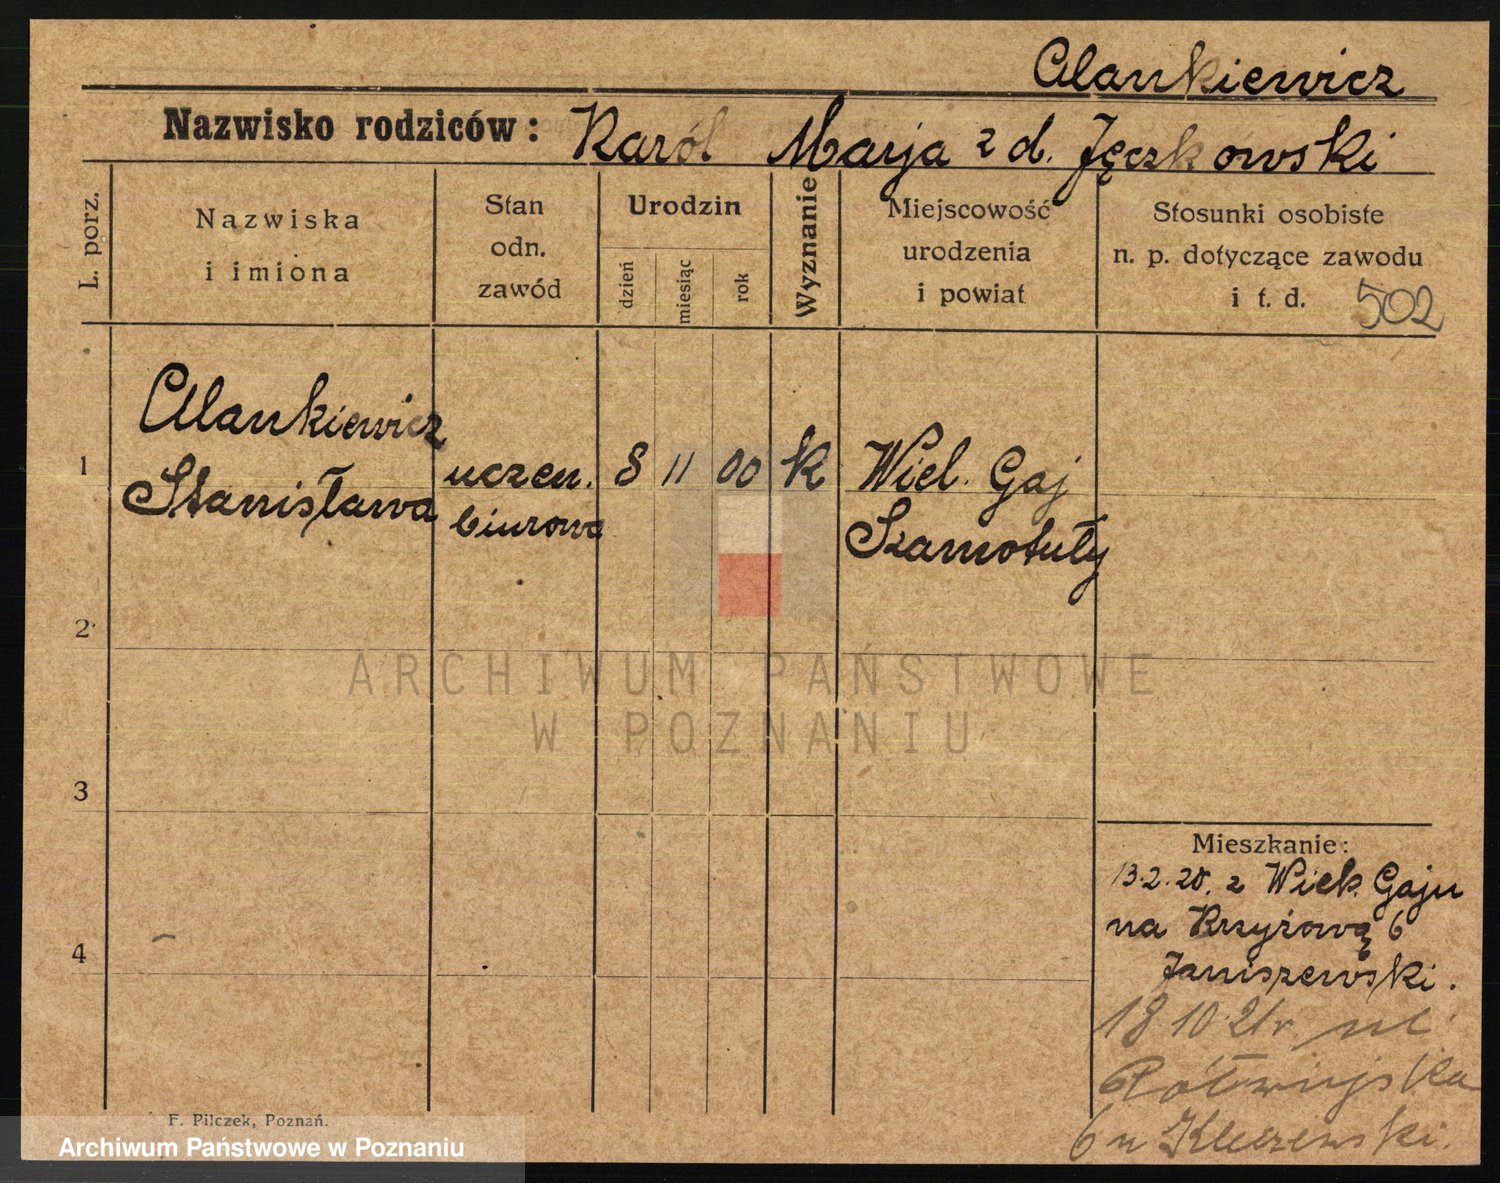 Alankiewicz
Nazwisko rodziców: Karól Marja z d. Jęczkowski
L. porz.
Nazwiska
i imiona
Stan
odn.
zawód
Urodzin
dzień
miesiąc
rok
Wyznanie
Miejscowość
urodzenia
i powiat
Stosunki osobiste
n. p. dotyczące zawodu
i t. d. 502
1
Alankiewicz
Stanisława
uczen.
biurowa
8 11 00 K
Wiel. Gaj
Szamotuły
2
3
4
Mieszkanie:
13.2.20. z Wielk. Gaju
na Krzyżową 6
Janiszewski.
18.10.21r ul.
Półwiejska
6 u
F. Pilczek, Poznań.
ARCHIWUM PAŃSTWOWE
W POZNANIU
Archiwum Państwowe w Poznaniu